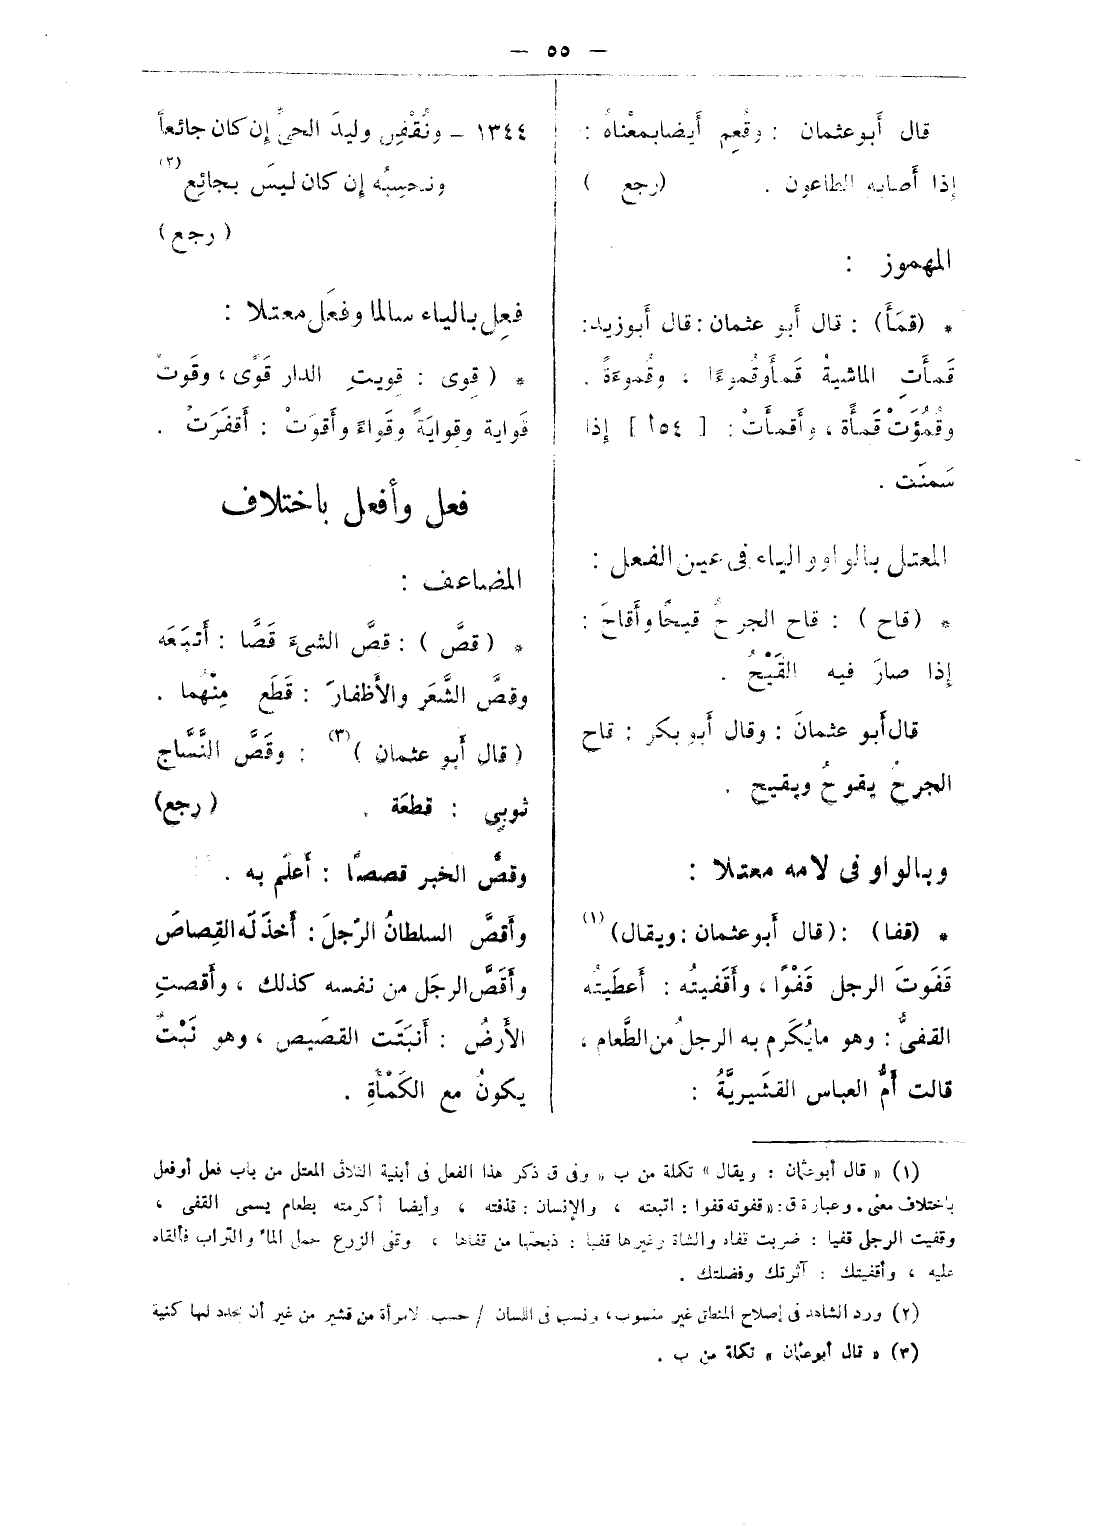 — ٥٥ —
قال أبو عثمان : وقُعِم أيضا بمعْناهُ :
إذا أصابه الطاعون . (رجع )
المهموز :
* (قمَأَ) : قال أَبو عثمان : قال أَبوزيد:
قَمأَت الماشيةُ قَمأً وقُموءًا ، وقُموءَةً .
وقُمُؤَتْ قَمأَةً ، وأَقمأَتْ : [ ١٥٤ ] إذا
سَمنَت .
المعتل بالواو والياء فى عين الفعل :
* (قاح ) : قاح الجرحُ قيحًا وأَقاحَ :
إذا صارَ فيه القَيْحُ .
قال أَبو عثمانَ : وقال أَبو بكر : قاح
الجرحُ يقوحُ ويقيح .
وبالواو فى لامه معتلا :
* (قفا) : (قال أَبو عثمان : ويقال) (١)
قَفَوتَ الرجل قَفْوًا ، وأَقفيتُه : أَعطَيتُه
القفىُّ : وهو مايُكَرم به الرجلُ من الطَّعام ،
قالت أُمُّ العباس القشَيريَّةُ :
١٣٤٤ – ونُقْفِى وليدَ الحىِّ إن كان جائعاً
ونحسِبُه إن كان ليسَ بجائِع (٢)
( رجع )
فعِل بالياء سالما وفعَل معتلا :
* ( قوى : قويتِ الدار قَوًى ، وقَوتْ
قَواية وقِوايَةً وقَواءً وأَقوَتْ : أَقفَرَتْ .
فعل وأفعل باختلاف
المضاعف :
* ( قصَّ ) : قصَّ الشىءَ قَصًّا : أَتبَعَه
وقصَّ الشَّعَر والأَظفارَ : قَطَع مِنْهُما .
( قال أَبو عثمان ) (٣) : وقَصَّ النَّسَّاج
ثوبِى : قطعَة . ( رجع)
وقصَّ الخبر قصصًا : أَعلَم به .
وأَقصَّ السلطانُ الرّجلَ : أَخذَ لَه القِصاصَ
وأَقَصَّ الرجَل من نفسه كذلك ، وأَقصتِ
الأَرضُ : أَنبَتَت القصَيص ، وهو نَبْتٌ
يكونُ مع الكَمْأَةِ .
(١) « قال أبوعثمان : ويقال » تكملة من ب » وفى ق ذكر هذا الفعل فى أبنية الثلاثى المعتل من باب فعل أو فعل
باختلاف معنى . وعبارة ق : « قفوته قفوا : اتبعته ، والإنسان : قذفته ، وأيضا أكرمته بطعام يسمى القفى ،
وقفيت الرجل قفيا : ضربت قفاه والشاة وغيرها قفيا : ذبحتها من قفاها ، وقفى الزرع حمل الماء والتراب فألقاه
عليه ، وأقفيتك : آثرتك وفضلتك .
(٢) ورد الشاهد فى إصلاح المنطق غير منسوب ، ونسب فى اللسان / حسب لامرأة من قشير من غير أن يحدد لها كنية
(٣) « قال أبوعثمان » تكملة من ب .